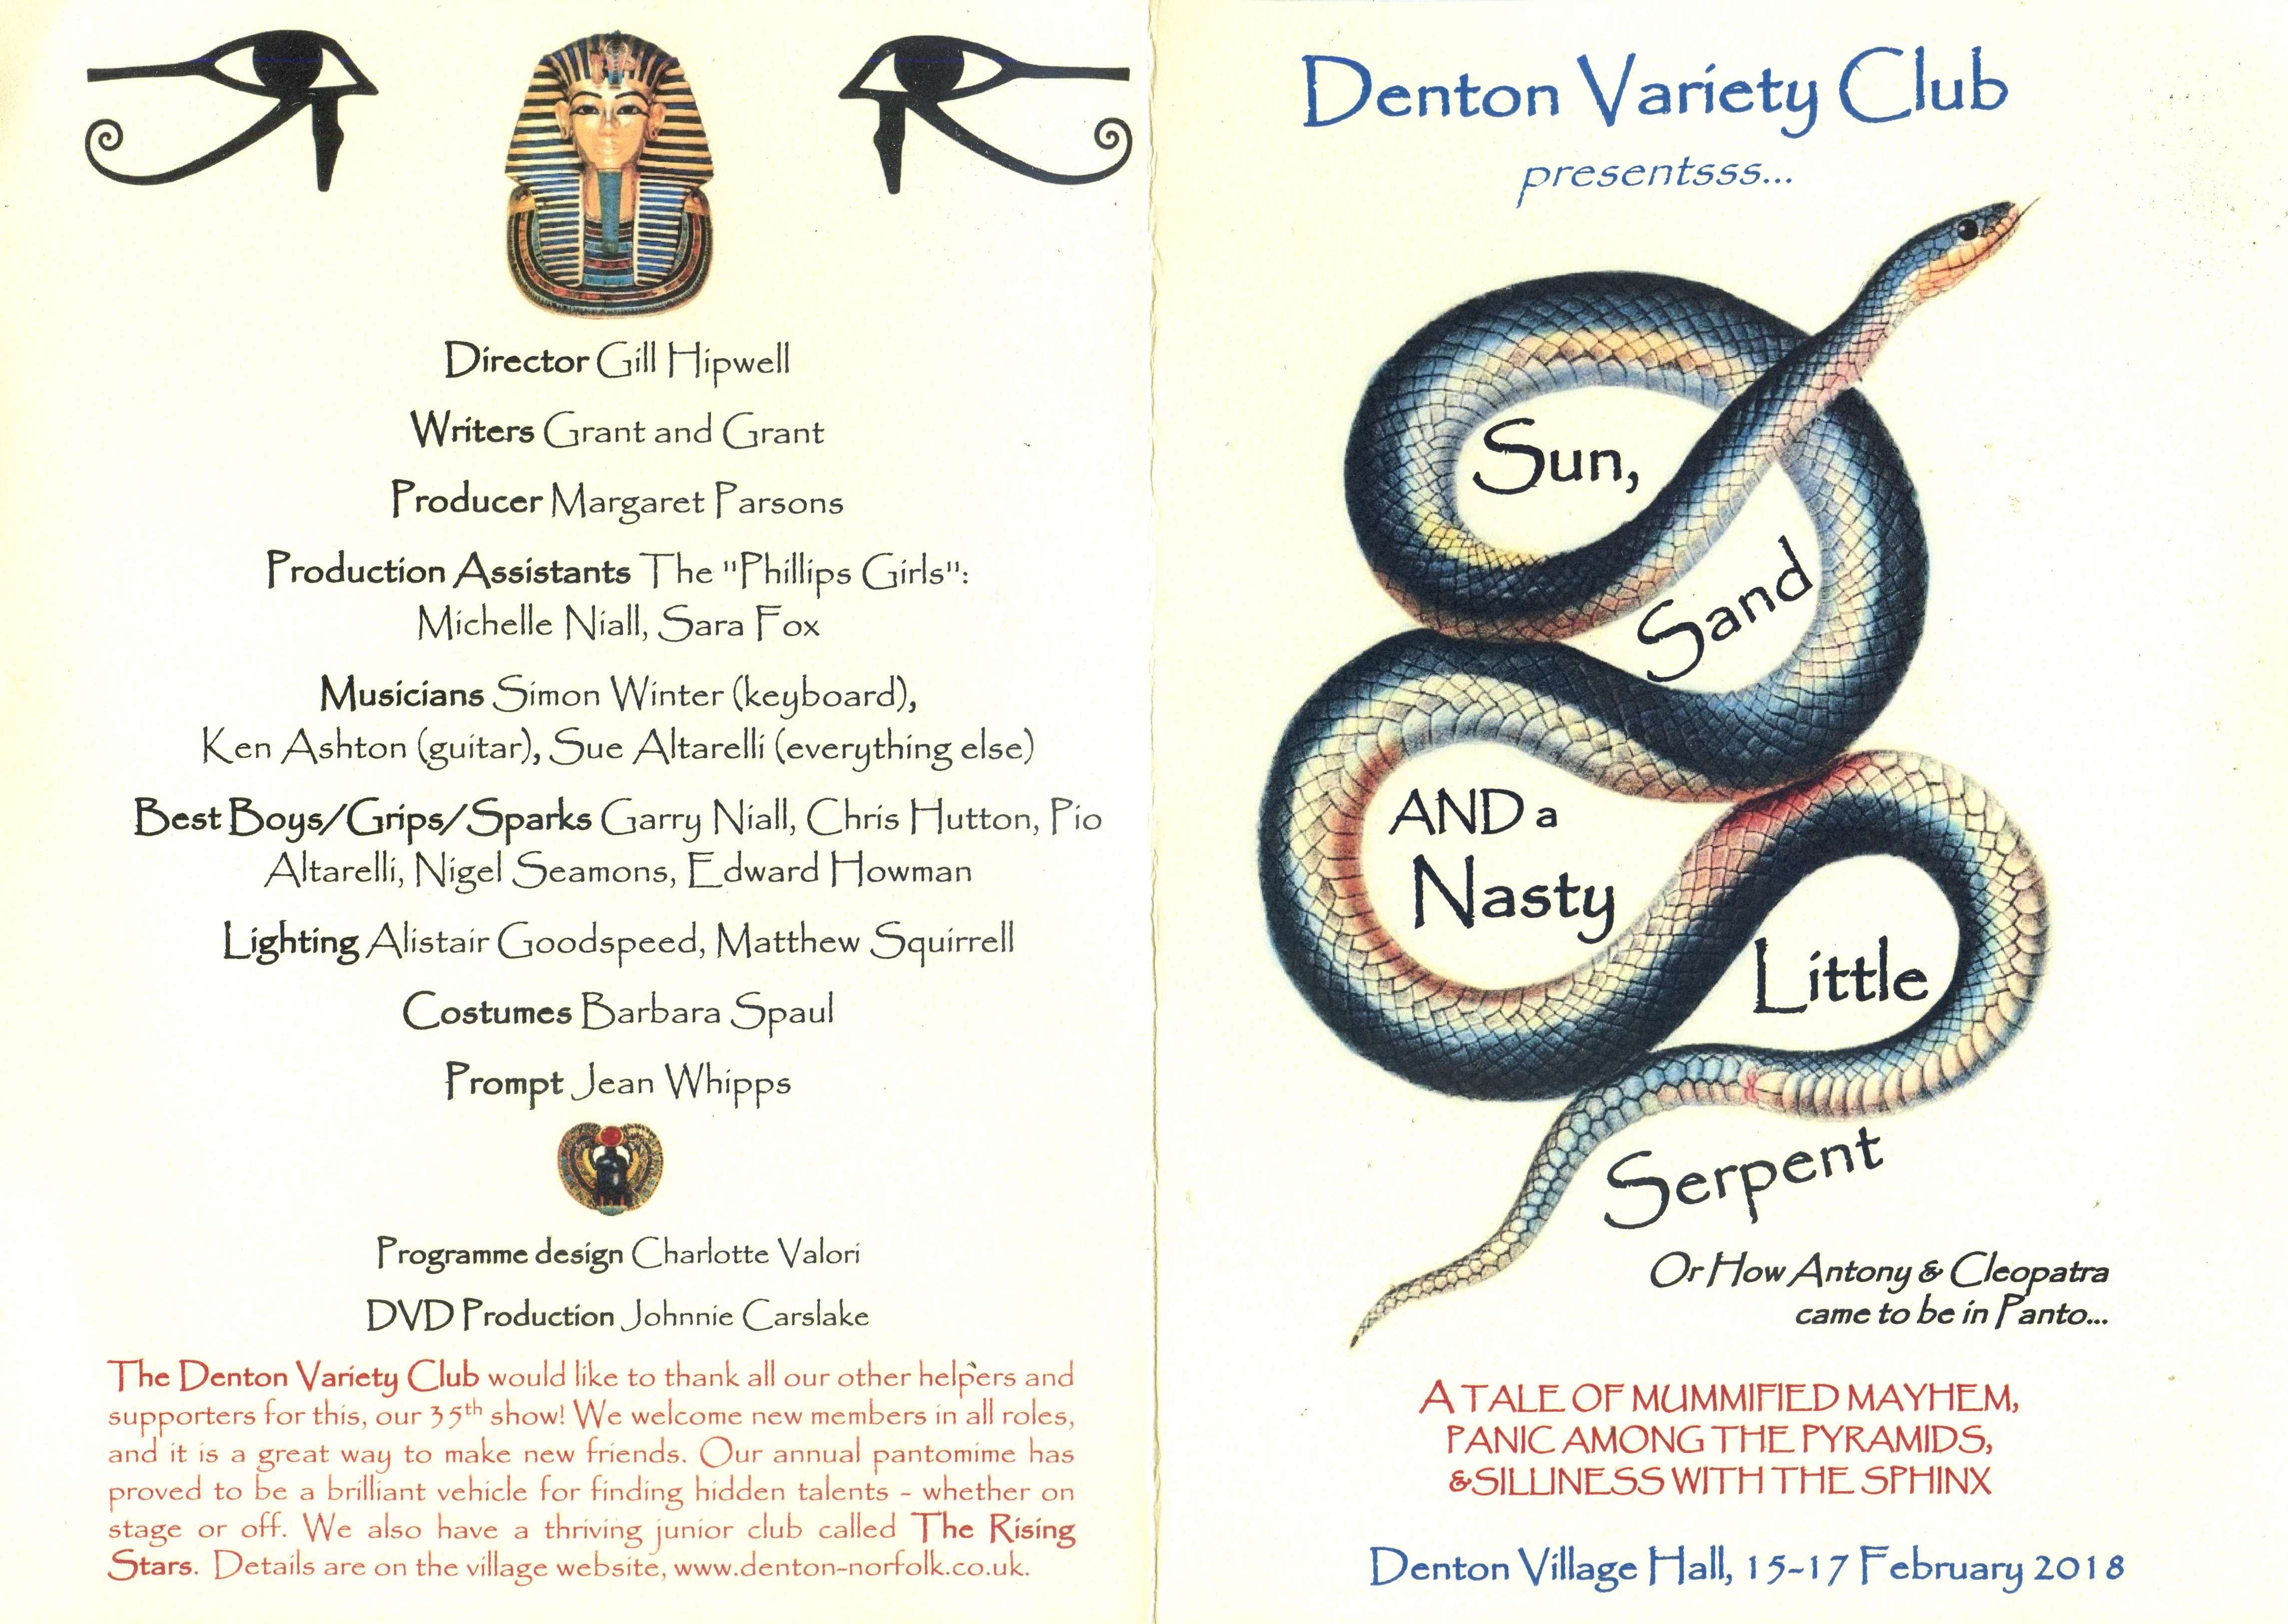 Director Gill Hipwell
Writers Grant and Grant
Producer Margaret Parsons
Production Assistants The "Phillips Girls":
Michelle Niall, Sara Fox
Musicians Simon Winter (keyboard),
Ken Ashton (guitar), Sue Altarelli (everything else)
Best Boys/Grips/Sparks Garry Niall, Chris Hutton, Pio
Altarelli, Nigel Seamons, Edward Howman
Lighting Alistair Goodspeed, Matthew Squirrell
Costumes Barbara Spaul
Prompt Jean Whipps
Programme design Charlotte Valori
DVD Production Johnnie Carslake
The Denton Variety Club would like to thank all our other helpers and
supporters for this, our 35th show! We welcome new members in all roles,
and it is a great way to make new friends. Our annual pantomime has
proved to be a brilliant vehicle for finding hidden talents - whether on
stage or off. We also have a thriving junior club called The Rising
Stars. Details are on the village website, www.denton-norfolk.co.uk.
Denton Variety Club
presentsss...
Sun,
Sand
AND a
Nasty
Little
Serpent
Or How Antony & Cleopatra
came to be in Panto...
A TALE OF MUMMIFIED MAYHEM,
PANIC AMONG THE PYRAMIDS,
&SILLINESS WITH THE SPHINX
Denton Village Hall, 15-17 February 2018